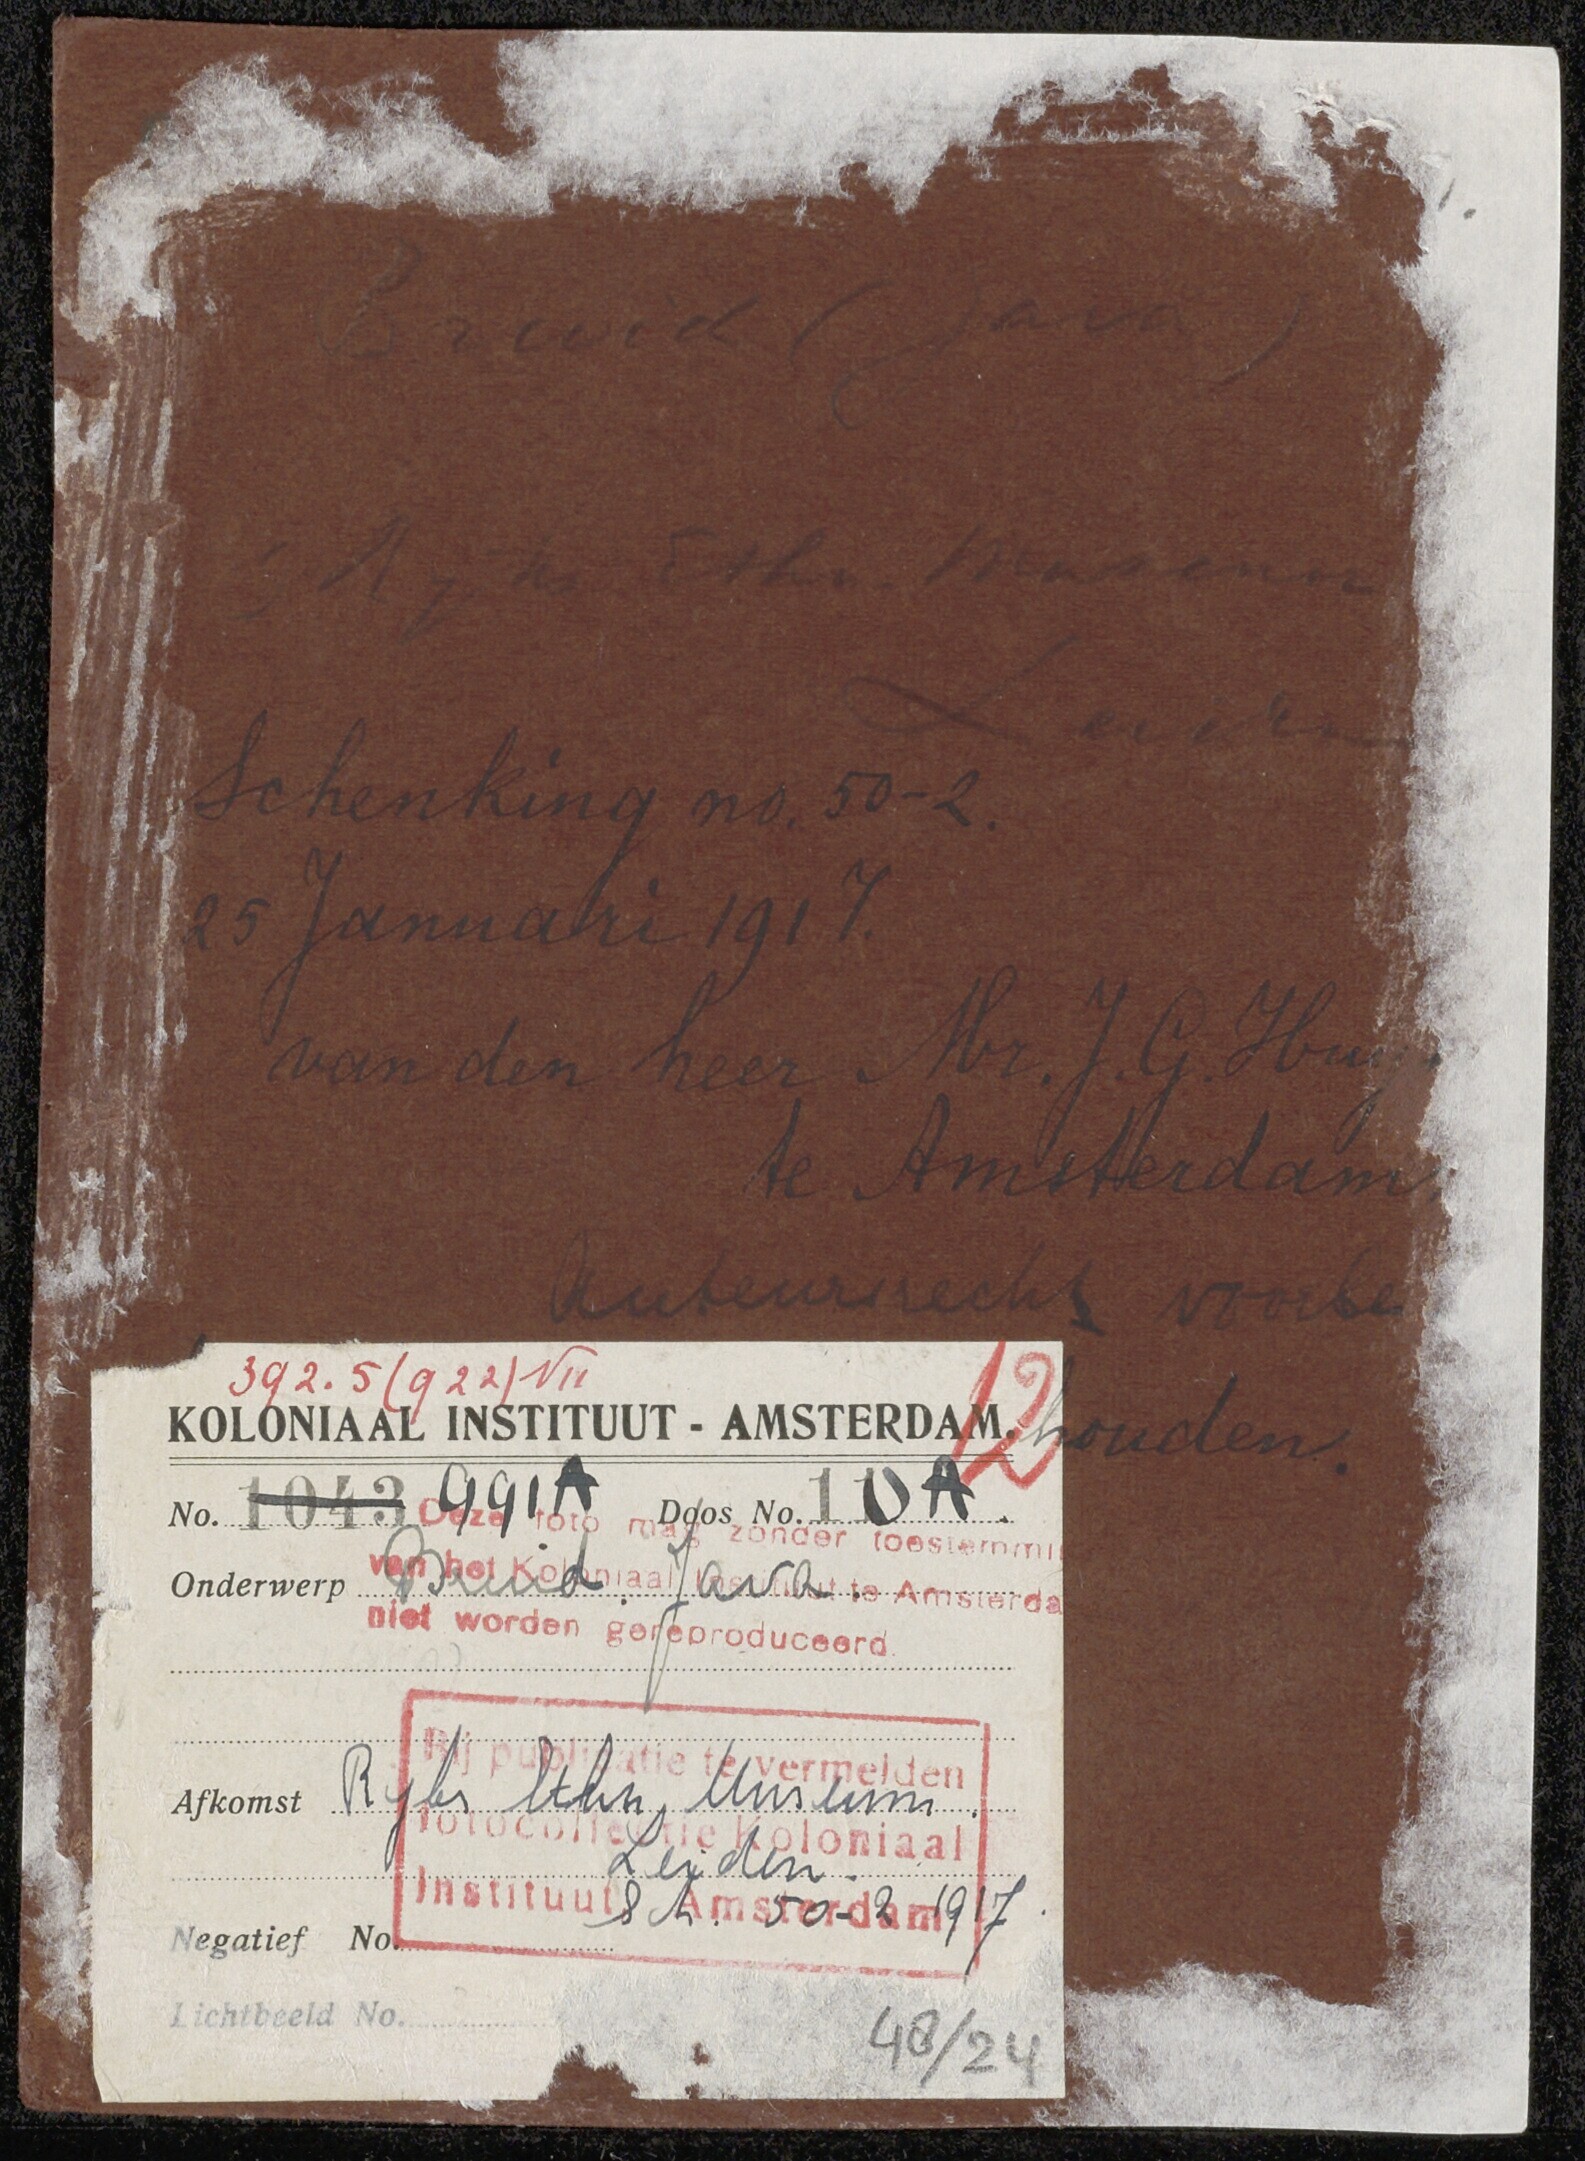 Bruid (Java)
Rijks Ethn. Museum
Leiden
Schenking no. 50-2.
25 Januari 1917.
van den heer Mr. J. G. Huy
te Amsterdam
Auteursrecht voorbe
houden.
392.5(922) VII
12
KOLONIAAL INSTITUUT - AMSTERDAM.
No. 1043 991A Doos No. 10A.
Deze foto mag zonder toestemmi
van het Koloniaal Instituut te Amsterda
niet worden gereproduceerd.
Onderwerp Bruid. Java.
Bij publicatie te vermelden
fotocollectie Koloniaal
Instituut Amsterdam
Afkomst Rijks Ethn. Museum.
Leiden.
Sch. 50-2 1917.
Negatief No.
Lichtbeeld No.
48/24